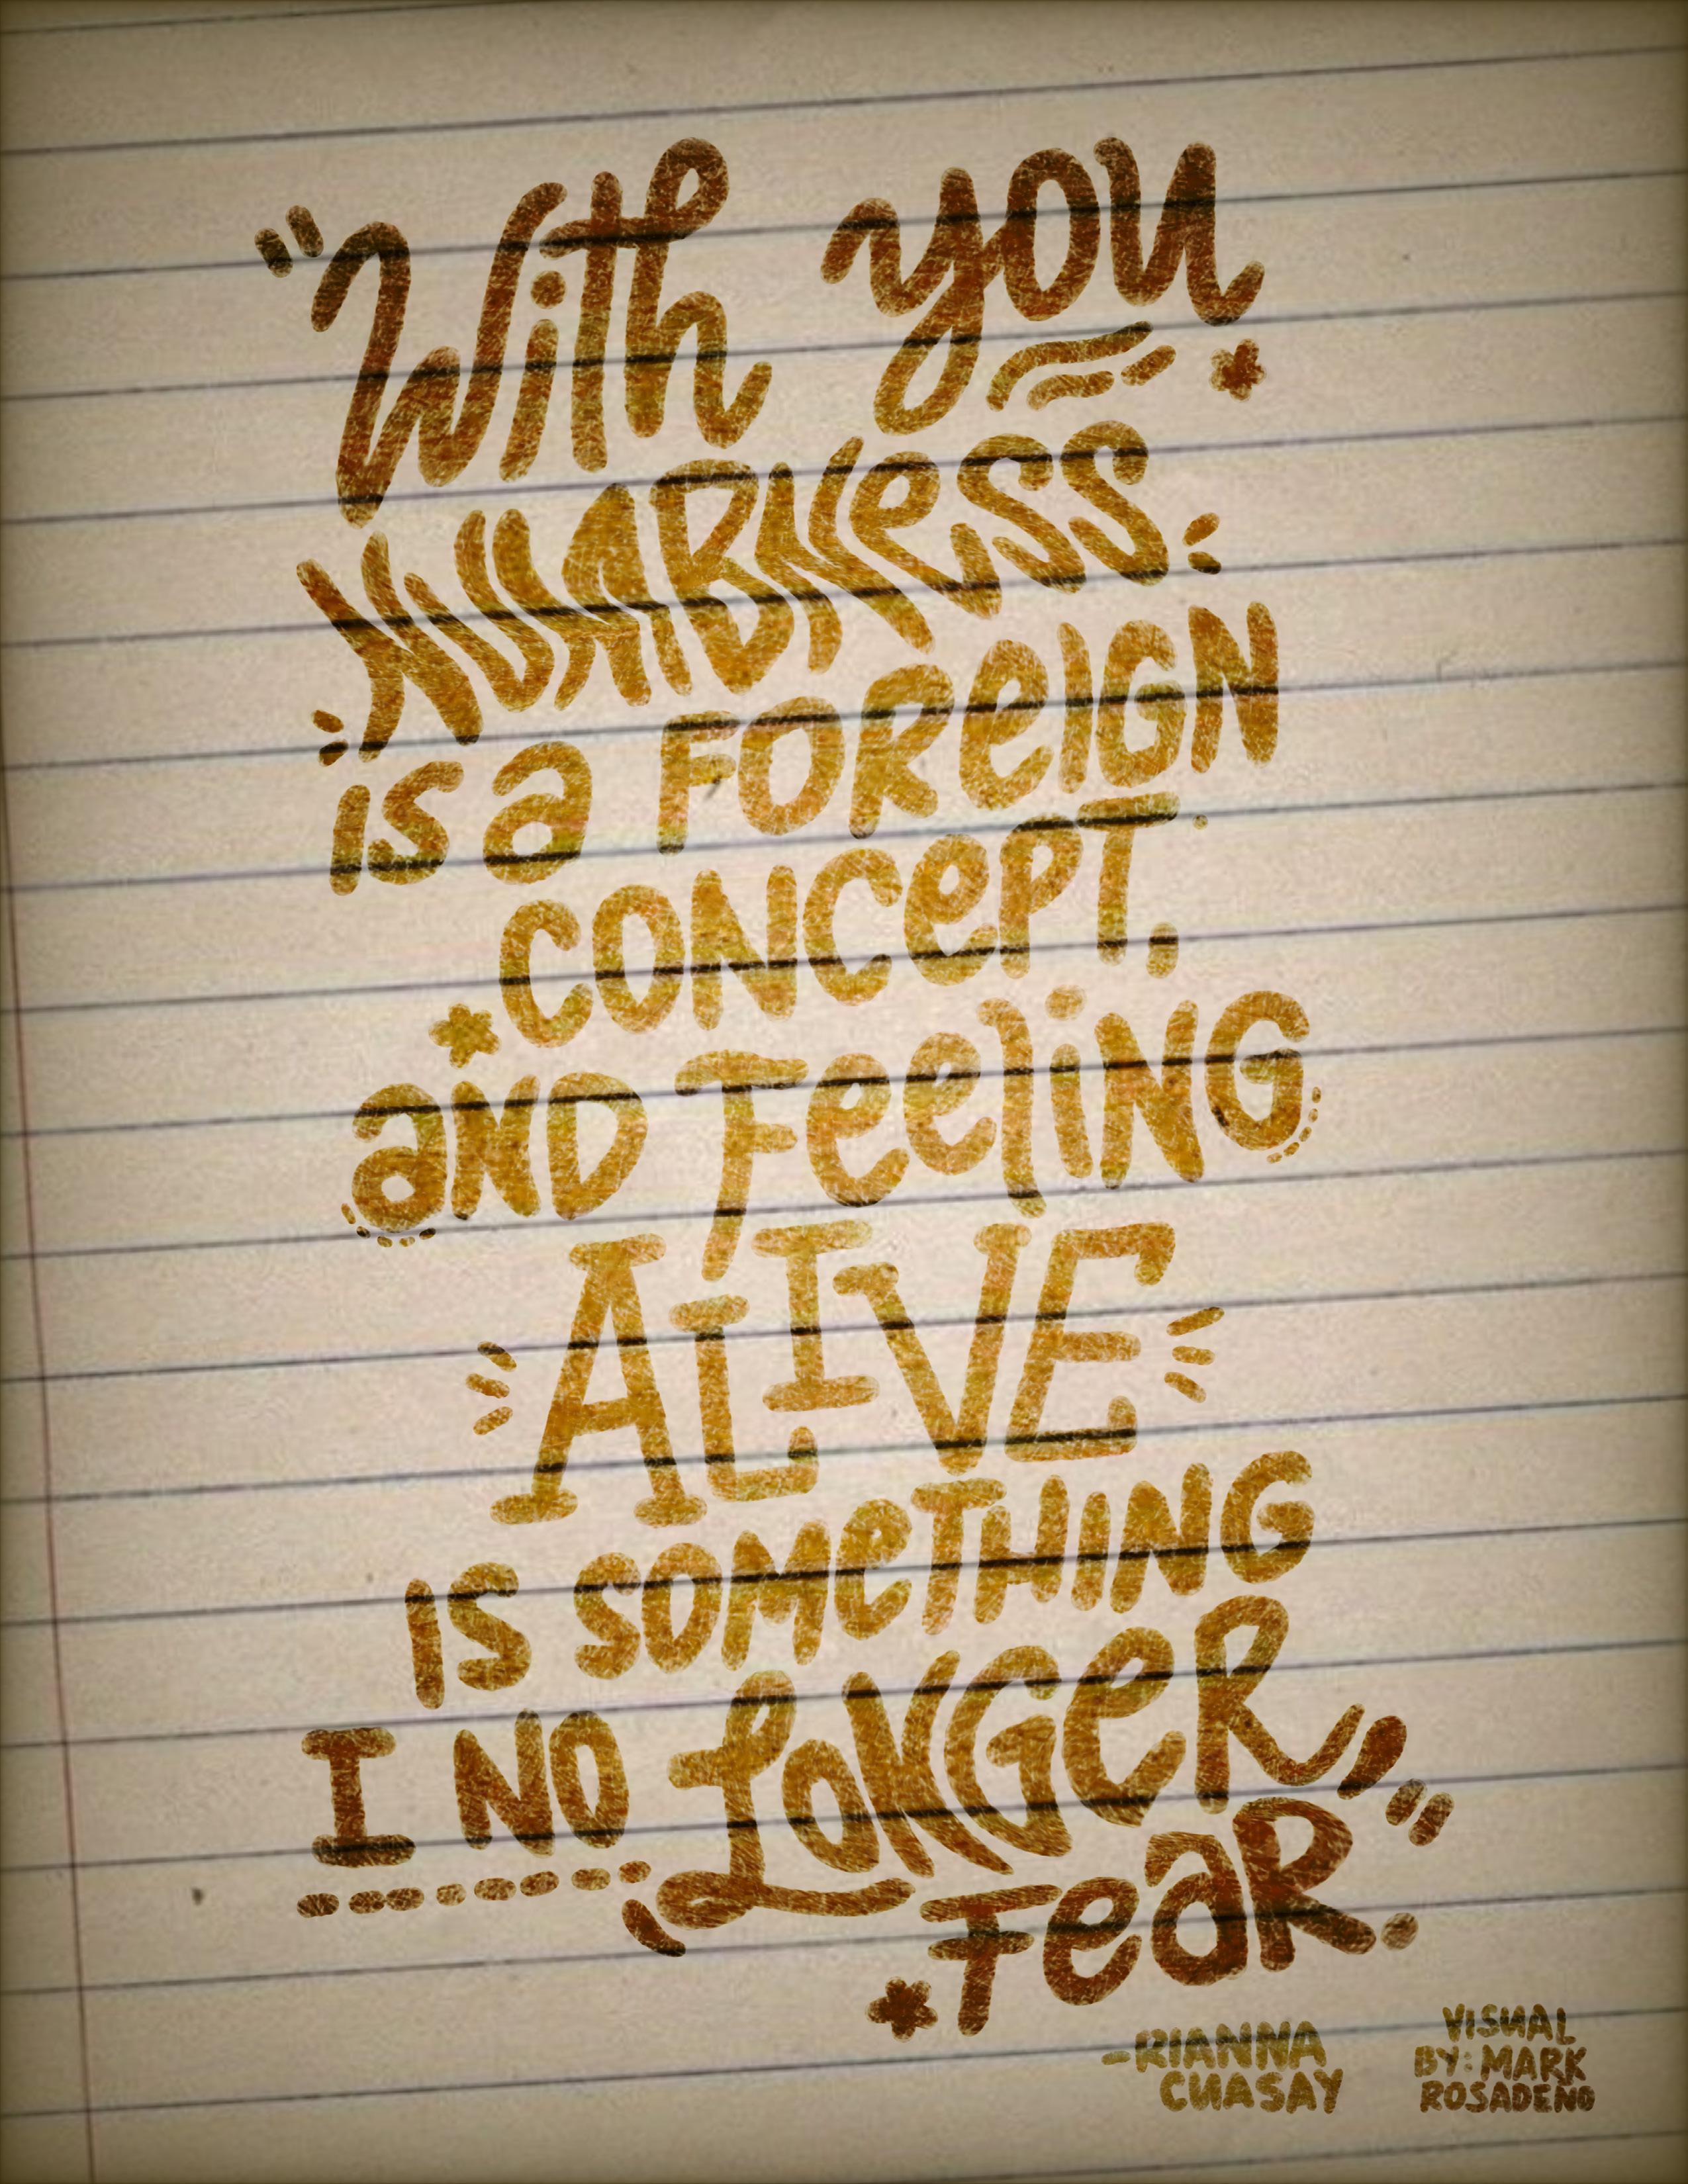 "With you
NUMBNess
is a FOReIGN
CONCePT,
aND FeeliNG
ALIVE
IS SOMeTHING
I NO LONGeR,
FeaR."
-RIANNA
CUASAY
VISUAL
BY: MARK
ROSADENO